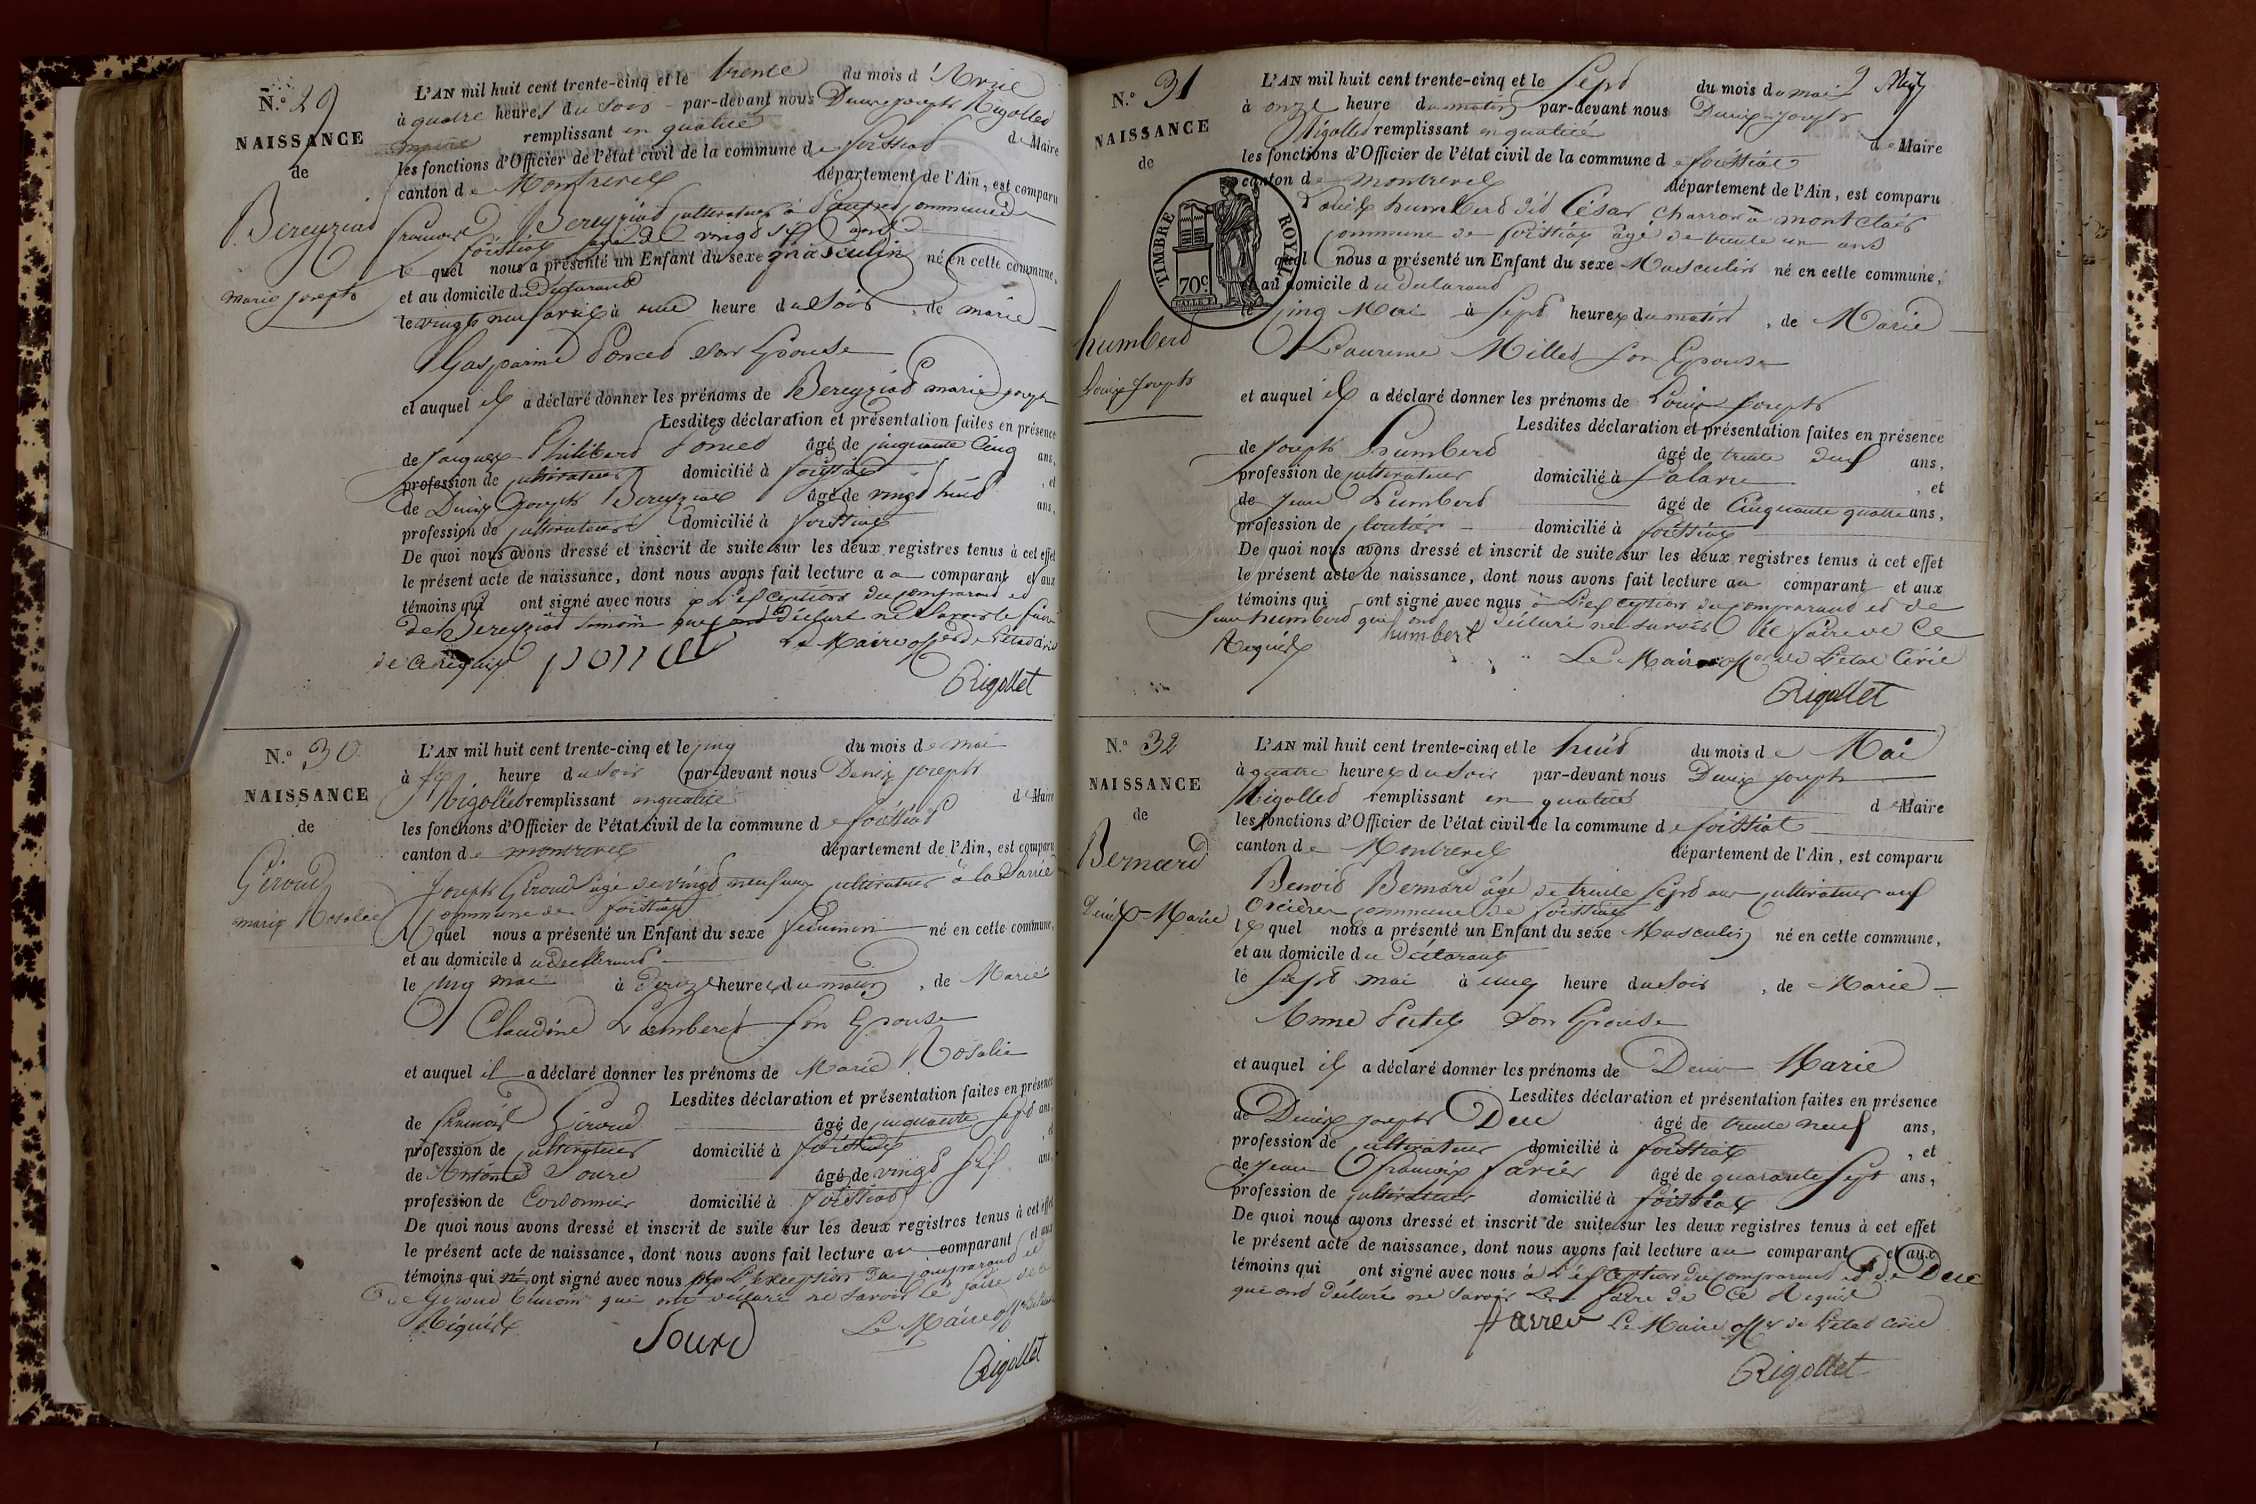 N.º 29
NAISSANCE
de
Bereyziat
marie joseph
L'AN mil huit cent trente-cinq et le trente du mois d'Avril
à quatre heures du soir par-devant nous Denis joseph Rigollet
maire remplissant en qualité de Maire
les fonctions d'Officier de l'état civil de la commune de foissiat
canton de Montrevel département de l'Ain, est comparu
francois Bereyziat cultivateur à commune de
foissiat agé de vingt sept ans
le quel nous a présenté un Enfant du sexe masculin né en cette commune,
et au domicile du declarant
le vingt neuf avril à une heure du soir, de marie
Gasparine Poncet son Epouse
et auquel il a déclaré donner les prénoms de Bereyziat marie joseph
Lesdites déclaration et présentation faites en présence
de jacques Philibert Poncet âgé de cinquante cinq ans,
profession de cultivateur domicilié à foissiat, et
de Denis joseph Bereyziat âgé de vingt huit ans,
profession de cultivateur domicilié à foissiat
De quoi nous avons dressé et inscrit de suite sur les deux registres tenus à cet effet
le présent acte de naissance, dont nous avons fait lecture au comparant et aux
témoins qui ont signé avec nous à L'exception du comparant et
de Bereyziat temoin qui ont déclaré ne Savoir le faire
de ce requis poncet Le Maire off. de l'état Civil
Rigollet
N.º 30
NAISSANCE
de
Giroud
marie Rosalie
L'AN mil huit cent trente-cinq et le cinq du mois de mai
à six heure du soir par-devant nous Denis joseph
Rigollet remplissant en qualité de Maire
les fonctions d'Officier de l'état civil de la commune de foissiat
canton de montrevel département de l'Ain, est comparu
Joseph Giroud agé de vingt neuf ans cultivateur à la
commune de foissiat
le quel nous a présenté un Enfant du sexe féminin né en cette commune,
et au domicile du declarant
le cinq mai à heures du matin, de Marie
Claudine Lamberet son Epouse
et auquel il a déclaré donner les prénoms de Marie Rosalie
Lesdites déclaration et présentation faites en présence
de francois Giroud âgé de cinquante sept ans,
profession de cultivateur domicilié à foissiat, et
de Antoine Sourd âgé de vingt six ans,
profession de Cordonnier domicilié à foissiat
De quoi nous avons dressé et inscrit de suite sur les deux registres tenus à cet effet
le présent acte de naissance, dont nous avons fait lecture au comparant et aux
témoins qui ont signé avec nous L'exception du comparant et
de Giroud temoin qui ont déclaré ne Savoir le faire de ce
Réquis Sourd Le Maire off.
Rigollet
N.º 31
NAISSANCE
de
humbert
Louis joseph
TIMBRE ROYAL
70c
L'AN mil huit cent trente-cinq et le Sept du mois de mai
à onze heure du matin par-devant nous Denis joseph
Rigollet remplissant en qualité de Maire
les fonctions d'Officier de l'état civil de la commune de foissiat
canton de montrevel département de l'Ain, est comparu
Louis humbert dit César charron à montclair
commune de foissiat âgé de trente un ans
quel nous a présenté un Enfant du sexe Masculin né en cette commune,
au domicile du declarant
cinq Mai à Sept heures du matin, de Marie
Laurence Millet son Epouse
et auquel il a déclaré donner les prénoms de Louis joseph
Lesdites déclaration et présentation faites en présence
de joseph humbert âgé de trente deux ans,
profession de cultivateur domicilié à, et
de jean humbert âgé de Cinquante quatre ans,
profession de domicilié à foissiat
De quoi nous avons dressé et inscrit de suite sur les deux registres tenus à cet effet
le présent acte de naissance, dont nous avons fait lecture au comparant et aux
témoins qui ont signé avec nous à L'exception du comparant et de
jean humbert qui ont déclaré ne Savoir le faire de Ce
Requis humbert Le Maire off. de L'état Civil
Rigollet
N.º 32
NAISSANCE
de
Bernard
Denis Marie
L'AN mil huit cent trente-cinq et le huit du mois de Mai
à quatre heures du soir par-devant nous Denis joseph
Rigollet remplissant en qualité de Maire
les fonctions d'Officier de l'état civil de la commune de foissiat
canton de Montrevel département de l'Ain, est comparu
Benoit Bernard âgé de trente sept ans cultivateur aux
Orcières commune de foissiat
le quel nous a présenté un Enfant du sexe Masculin né en cette commune,
et au domicile du Déclarant
le Sept mai à une heure du soir, de Marie
Anne Putet son Epouse
et auquel il a déclaré donner les prénoms de Denis Marie
Lesdites déclaration et présentation faites en présence
de Denis joseph Duc âgé de trente neuf ans,
profession de cultivateur domicilié à foissiat, et
de jean francois âgé de quarante sept ans,
profession de cultivateur domicilié à foissiat
De quoi nous avons dressé et inscrit de suite sur les deux registres tenus à cet effet
le présent acte de naissance, dont nous avons fait lecture au comparant et aux
témoins qui ont signé avec nous à L'exception du comparant et de Duc
qui ont déclaré ne Savoir Le faire de Ce Réquis
Le Maire off. de L'état Civil
Rigollet